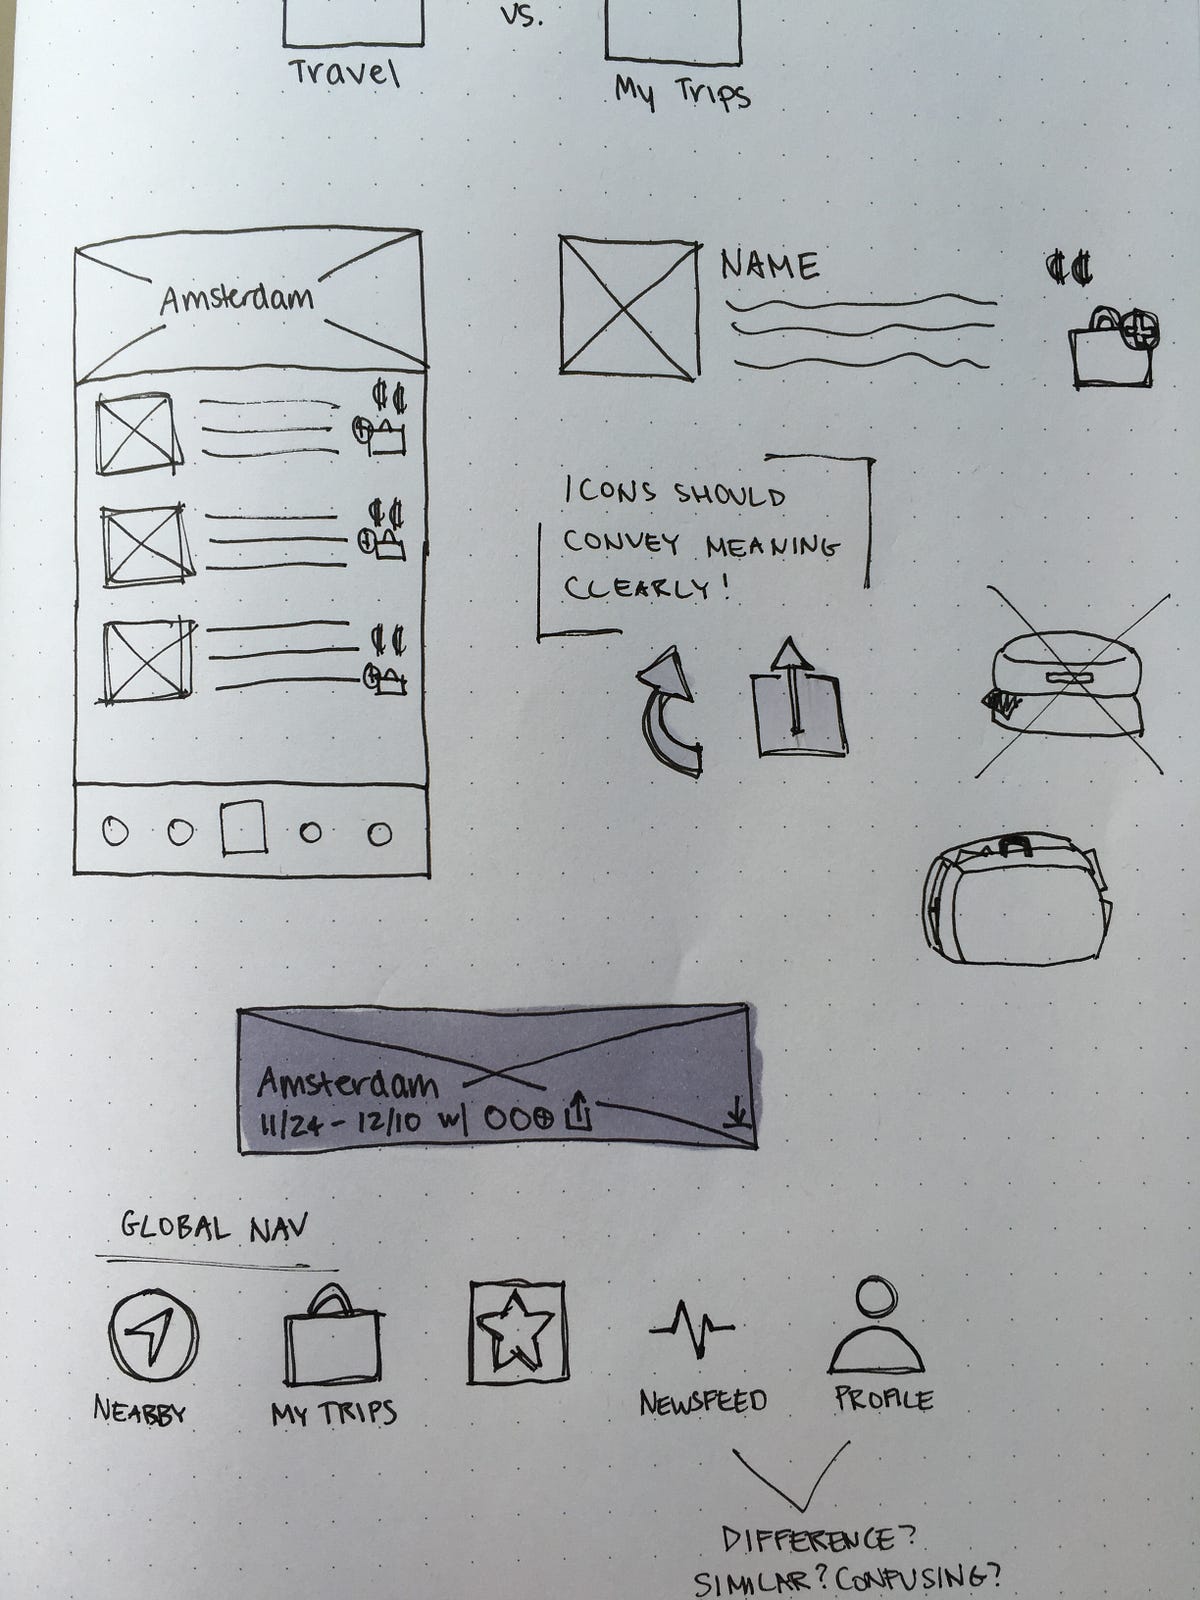 vs.
Travel
My Trips
Amsterdam
NAME
ICONS SHOULD
CONVEY MEANING
CLEARLY!
Amsterdam
11/24 - 12/10 w/
GLOBAL NAV
NEARBY
MY TRIPS
NEWSFEED
PROFILE
DIFFERENCE?
SIMILAR? CONFUSING?